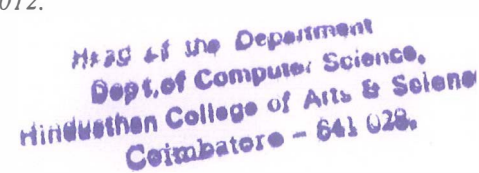 2012.
Head of the Department
Dept. of Computer Science,
Hindusthan College of Arts & Scien
Coimbatore – 641 028.